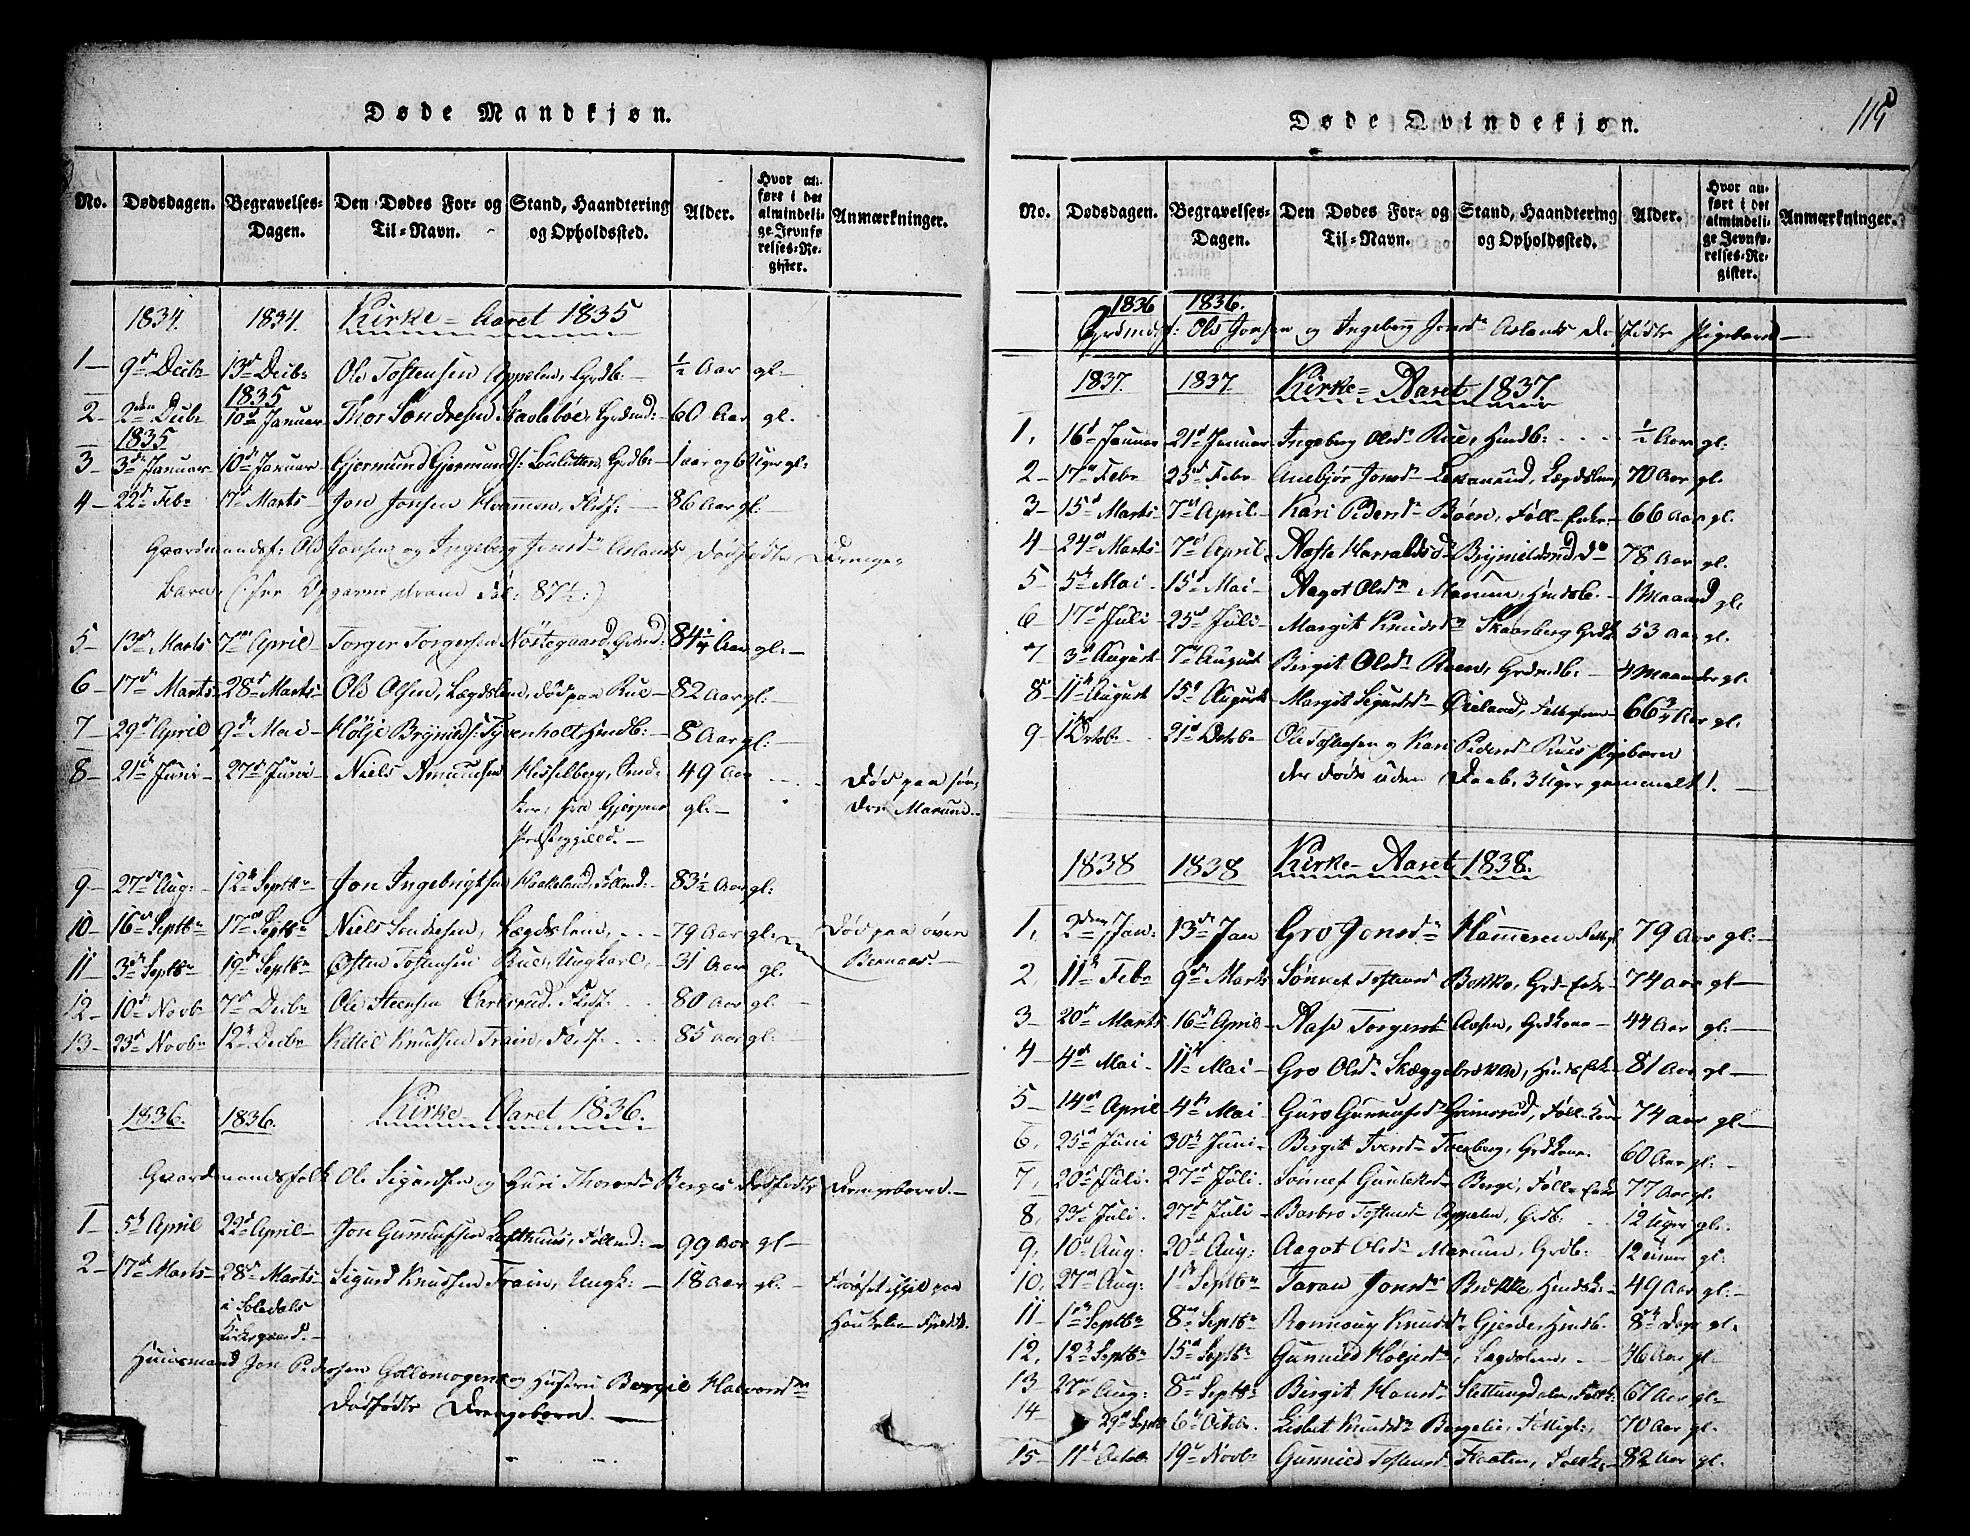 Døde Mandkjøn.
No. Dødsdagen. Begravelses-Dagen. Den Dødes For- og Til-Navn. Stand, Haandtering og Opholdssted. Alder. Hvor anført i det almindelige Jevnførelses-Register. Anmærkninger.
1834. 1834. Kirke-Aaret 1835
1 9de Decbr 13de Decbr Ole Tostensen Appelen, Grdb. ½ Aar gl.
1835
2 2den Decbr 10de Januar Thor Sondresen Skavlebøe, Grdmd: 60 Aar gl.
1835
3 3de Januar 10de Januar Gjermund Gjermunds: Loulutten, Grdb. 1 aar og 6 Uger gl:
4 22de Febr 17de Marts Jon Jonsen Hvammen, 86 Aar gl:
Gaardmandsf: Ole Jonsen og Ingeberg Jonsdr Aslands dødfødte Drenge-
barn, 87½:)
5 13de Marts 7de April Torger Torgersen Nöstegaard, Grdmd: 84¼ Aar gl:
6 17de Marts 28de Marts Ole Olsen, Lægdslem, død paa Rue 82 Aar gl:
7 29de April 9de Mai Hölje Brynilds: Tyvenholt Hmdb: 8 Aar gl:
8 21de Juni 27de Juni Niels Amundsen Hesselberg, 49 Aar Død paa
fra Gjerpens gl: Marum.
Præstegjeld.
9 27de Aug: 12te Septbr Jon Ingebrigtsen Haakeland, Follmd: 83½ Aar gl:
10 16de Septbr 17de Septbr Niels Sondresen, Lægdslem, 79 Aar gl: Død paa övre
11 3de Septbr 19de Septbr Østen Tostensen Rue, Ungkarl, 31 Aar gl. Bernaas.
12 10de Novbr 7de Decbr Ole Steensen Carlsrud, 80 Aar gl:
13 23de Novbr 12te Decbr Kettil Knudsen Train, 85 aar gl:
1836. 1836. Kirke-Aaret 1836.
Gaardmandsfolk Ole Sigurdsen og Guri Thorsdr Berges Dødfødte Drengebarn.
1 5te April 22de April Jon Gunnufsen Lofthuus, Follmd: 99 Aar gl
2 17de Marts 28de Marts Sigurd Knudsen Train, Ungk: 18 Aar gl: Frøset ihjel paa
i Seledals Houkelie-Fjeldet.
Kirkegaard.
Huusmand Jon Pedersen Gollomogens og Hustru Bergit Halvorsdr
Dødfødte Drengebarn.
Døde Qvindekjøn. 115
No. Dødsdagen. Begravelses-Dagen. Den Dødes For- og Til-Navn. Stand, Haandtering og Opholdssted. Alder. Hvor anført i det almindelige Jevnførelses-Register. Anmærkninger.
1836 1836.
Grdmdsf: Ole Jonsen og Ingeberg Jonsdr Aslands Dødfødte Pigebarn
1837. 1837. Kirke-Aaret 1837.
1. 16de Januar 21de Januar Ingeberg Olsdr Rue, Hmdb: ½ Aar gl.
2 17de Febr 25de Febr Anbjør Jonsdr Lægdslem, 70 Aar gl.
3 15de Marts 7de April Kari Pedersdr Bøen, Foll-Enke 66 Aar gl.
4 24de Marts 7de April Aaste Harraldsdr Brynildsrud, do 78 Aar gl.
5 5te Mai 15de Mai Aagot Olsdr Marum, Hmdsb. 1 Maaned gl.
6 17de Juli 25de Juli Margit Knudsdr Skaarberg 53 Aar gl.
7 3de August 7de August Birgit Olsdr Roen, Grdmdb: 4 Maaneder gl:
8 11te August 15de August Margit Sigurdsdr Øieland, 66¾ Aar gl.
9 1 Octobr 21de Octobr Ole Tostensen og Kari Pedersdr Rues Pigebarn
der døde uden Daab, 3 Uger gammelt.
1838 1838 Kirke-Aaret 1838.
1. 2den Jan: 13de Jan Gro Jonsdr Hammeren 79 Aar gl:
2. 11te Febr 9de Marts Sønnet Tostensdr Bakka, Grd-Enke 74 Aar gl
3 20de Marts 16de April Aase Torgersdr Aasen, Grdkone 44 Aar gl:
4 4de Mai 11te Mai Gro Olsdr Skæggebrække, Hmds Enke 81 Aar gl
5 14de April 4de Mai Guro Gunnufsdr Grimsrud, 74 aar gl:
6. 25de Juni 30te Juni Bergit Iversdr Tverberg, Grdkone. 60 Aar gl:
7. 20de Juli 27de Juli Sønnef Gunlekdr Berge, Foll-Enke 77 Aar gl.
8. 23de Juli 27de Juli Barbro Tostensdr Appelen, Grdb. 12 Uger gl:
9. 10de Aug: 20de Aug: Aagot Olsdr Marum, Grdb. 12 gl:
10. 27de Aug: 1ste Septbr Taran Jonsdr Bakke, 49 Aar gl:
11 1ste Septbr 8de Septbr Ronnoug Knudsdr Gjerde, Hmdb 8te Dage gl.
12. 12te Septbr 15de Septbr Gunnild Höljesdr, Lægdslem, 46 Aar gl.
13 27de Aug: 8de Septbr Birgit Hansdr Slettungdalen, 67 Aar gl.
14 29de Septbr 6te Octobr. Lisbet Knudsdr Bergelie, 70 Aar gl.
15 11te Octobr 19de Novbr Gunnild Tostensdr Flaaten, 82 Aar gl.